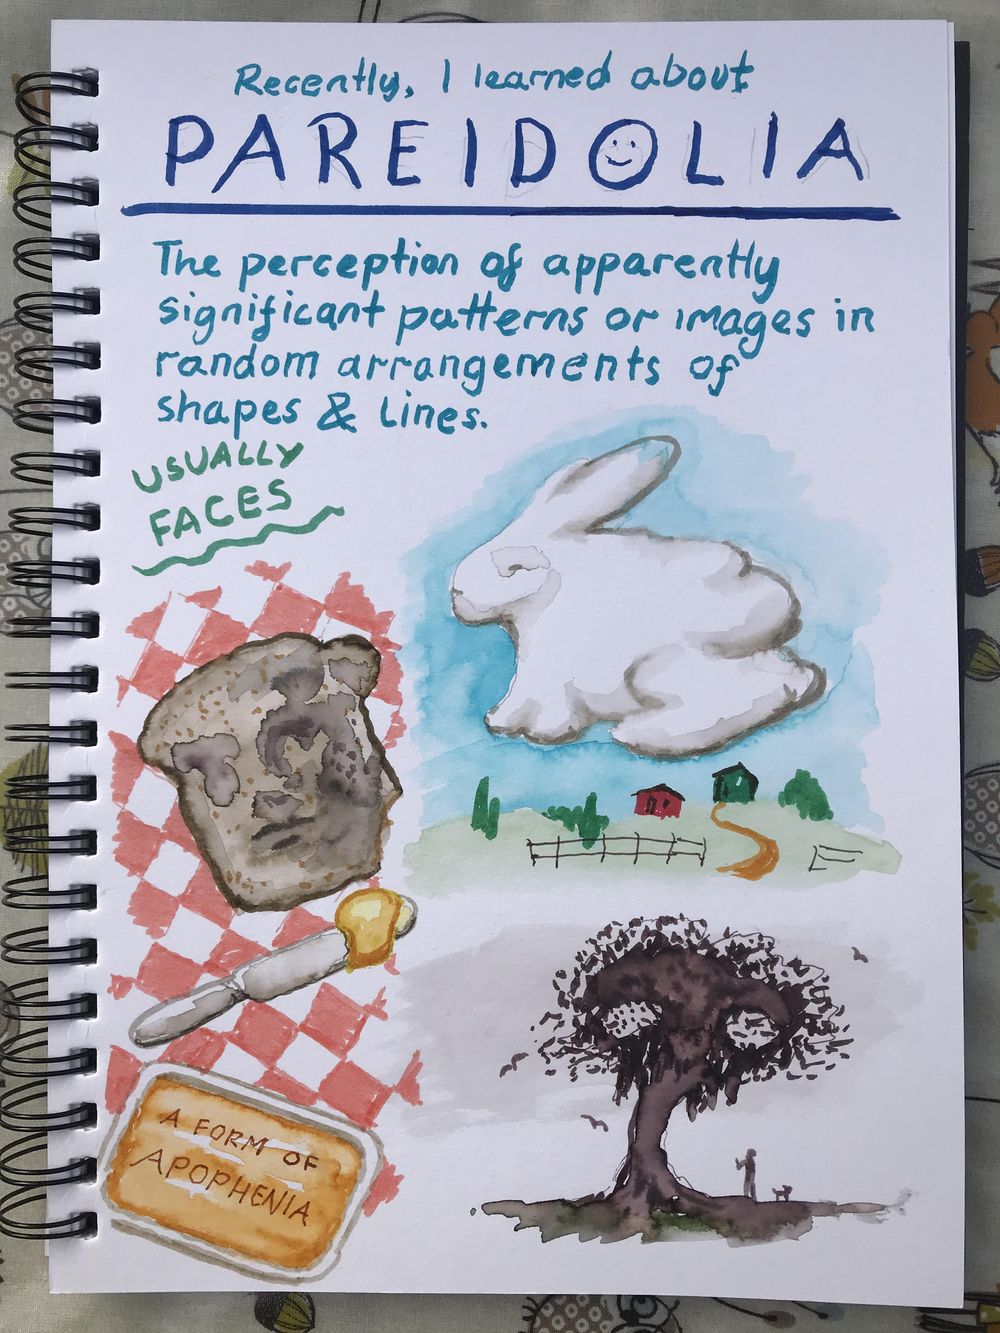 Recently, I learned about
PAREIDOLIA
The perception of apparently
significant patterns or images in
random arrangements of
shapes & lines.
USUALLY
FACES
A FORM OF
APOPHENIA